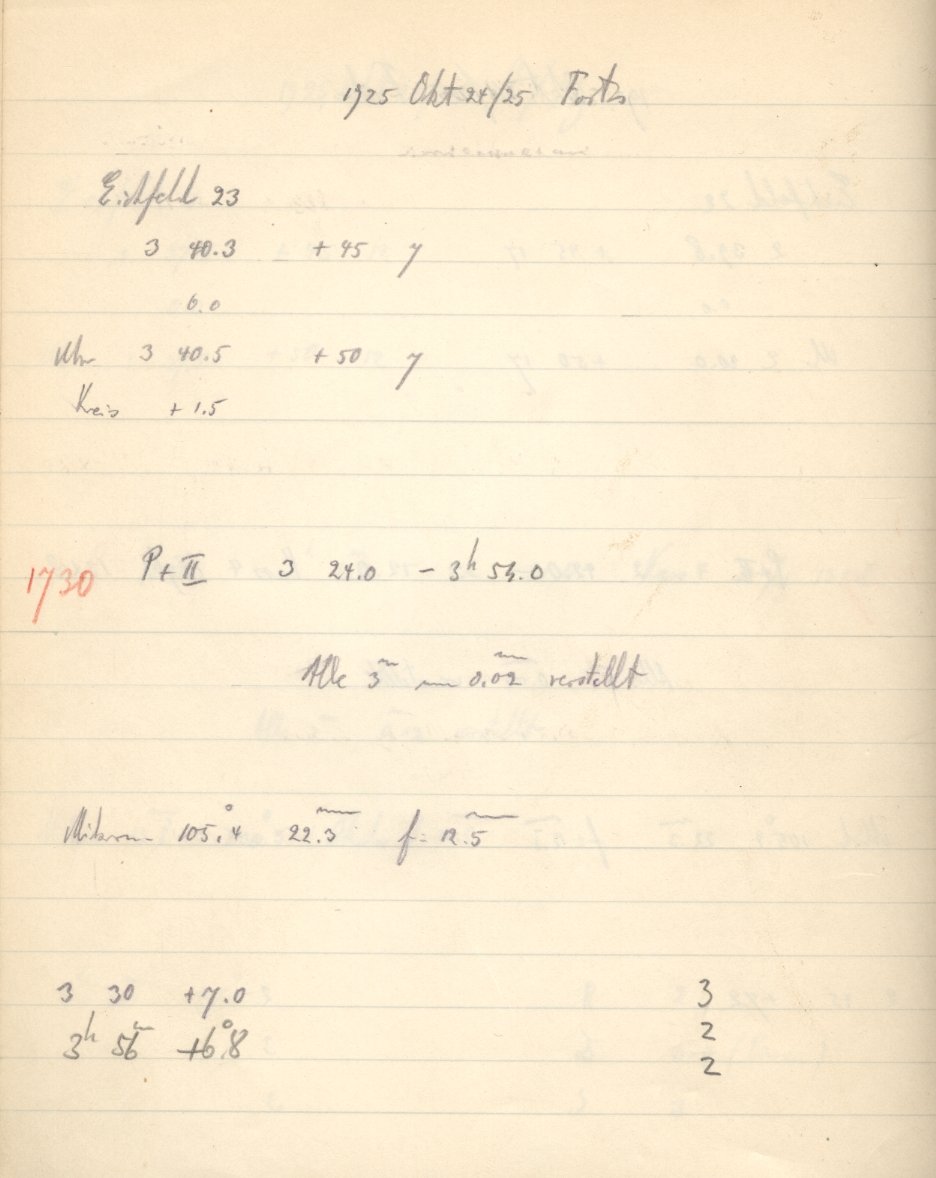 1925 Okt 24/25 Forts
Eichfeld 23
3 40.3 +45 7
6.0
Uhr 3 40.5 +50 7
Kreis +1.5
1730 P+II 3 24.0 – 3h 54.0
Alle 3m um 0.02mm verstellt
Mikrom 105°.4 22.3mm f= 12.5mm
3 30 +7.0 3
3h 56m +6°.8 2
2